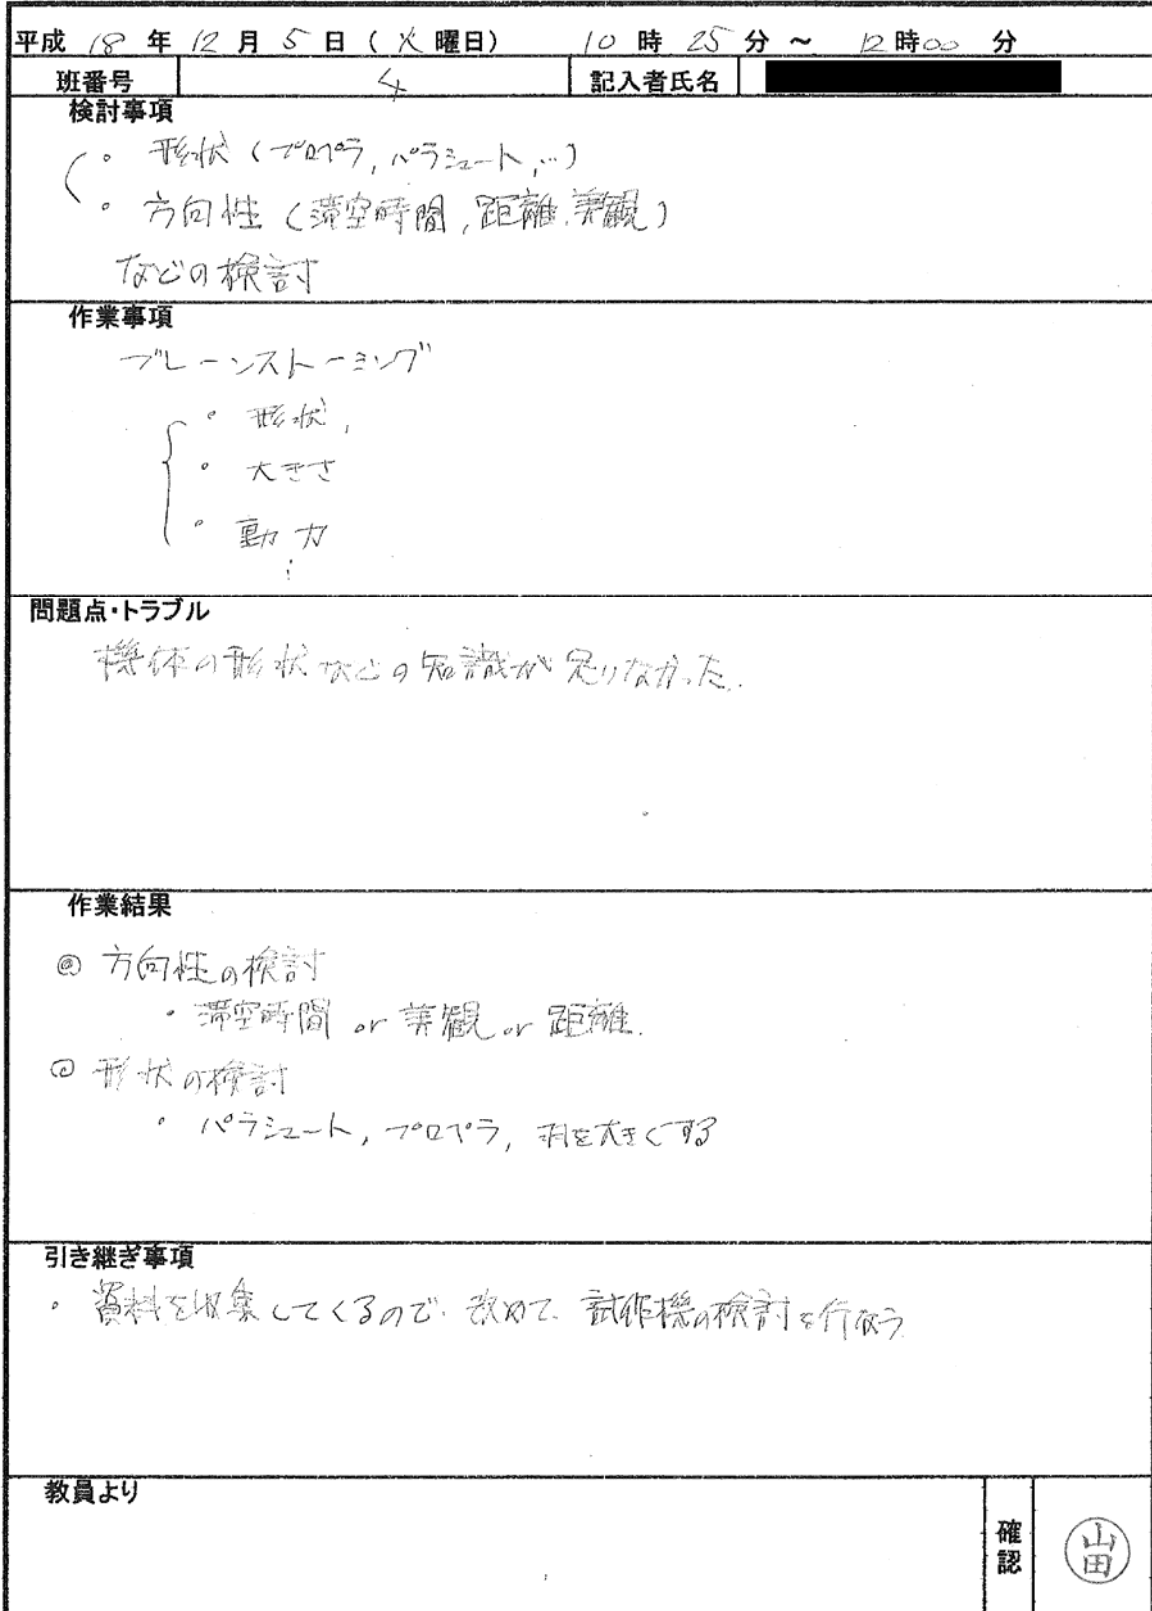 平成 18 年 12 月 5 日 ( 火 曜日) 10 時 25 分 ~ 12 時 00 分
班番号 4 記入者氏名
検討事項
・ 形状 (プロペラ, パラシュート, …)
・ 方向性 (滞空時間, 距離, 美観)
などの検討
作業事項
ブレーンストーミング
・ 形状,
・ 大きさ
・ 動力
⋮
問題点・トラブル
機体の形状などの知識が足りなかった.
作業結果
◎ 方向性の検討
・ 滞空時間 or 美観 or 距離.
◎ 形状の検討
・ パラシュート, プロペラ, 羽を大きくする
引き継ぎ事項
・ 資料を収集してくるので. 改めて. 試作機の検討を行なう
教員より
確認
山田